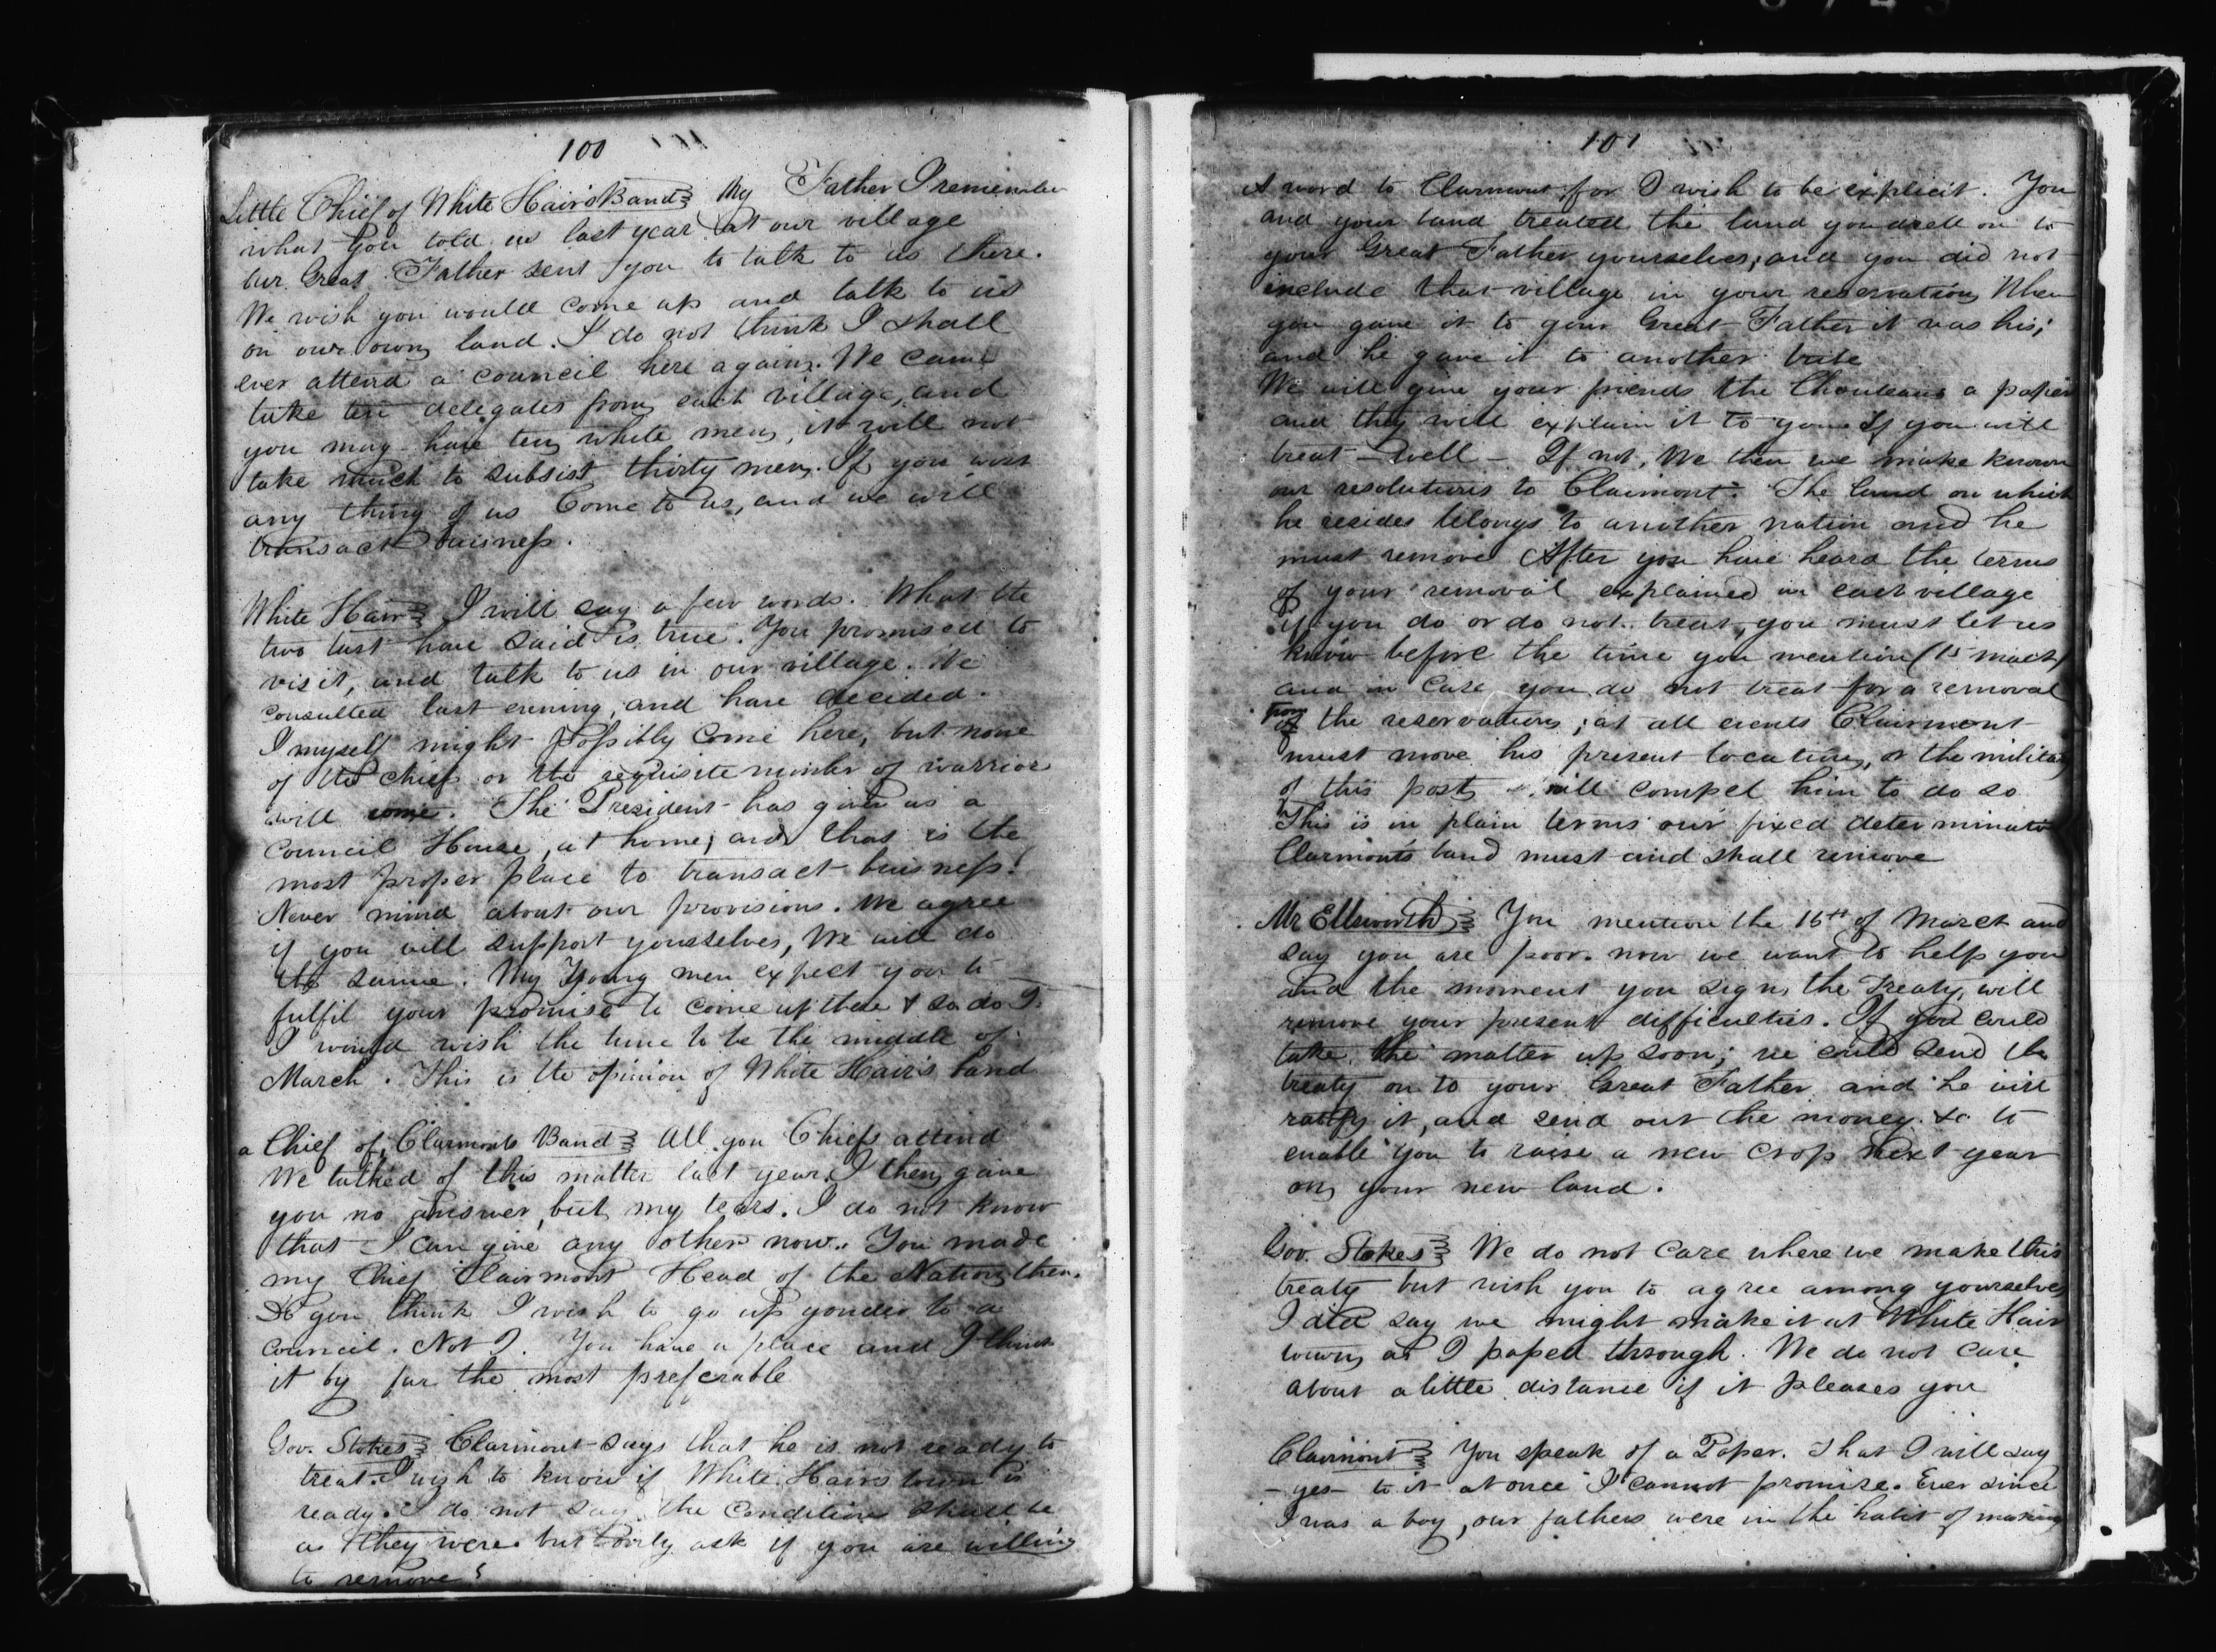 100
Little Chief of White Hair's Band My Father I remember
what you told us last year at our village
Our Great Father sent you to talk to us there.
We wish you would come up and talk to us
on our own land. I do not think I shall
ever attend a council here again. We came
take ten delegates from each village, and
you may have ten white men, it will not
take much to subsist thirty men. If you want
any thing of us Come to us, and we will
transact buisness.
White Hair I will say a few words. What the
two last have said is true. You promised to
visit, and talk to us in our village. We
consulted last evening, and have decided.
I myself might possibly come here, but none
of the chiefs or the requisite number of warriors
will come. The President has given us a
Council House, at home; and that is the
most proper place to transact buisness!
Never mind about our provisions. We agree
if you will support yourselves, We will do
the same. My Young men expect you to
fulfil your promise to come up there & so do I.
I would wish the time to be the middle of
March. This is the opinion of White Hair's band
a Chief of Clarmonts Band All you Chiefs attend
We talked of this matter last year. I then gave
you no answer, but my tears. I do not know
that I can give any other now. You made
my Chief Clairmont Head of the Nation then.
Do you think I wish to go up yonder to a
council. Not I. You have a place and I think
it by far the most preferable
Gov. Stokes Clarmont says that he is not ready to
treat. I wish to know if White Hairs town is
ready. I do not say the conditions shall be
as they were but only ask if you are willing
to remove?
101
A word to Clarmont for I wish to be explicit. You
and your band treated the land you dwell on to
your Great Father yourselves; and you did not
include that village in your reservation When
you gave it to your Great Father it was his;
and he gave it to another tribe
We will give your friends the Chouteaus a paper
and they will explain it to you. If you will
treat - well - If not, We then we make known
our resolutions to Claimont. The land on which
he resides belongs to another nation and he
must remove After you have heard the terms
of your removal explained in each village
if you do or do not treat, you must let us
know before the time you mention (15 March)
and in case you do not treat for a removal
from the reservation; at all events Clairmont
must move his present location, or the military
of this post will compel him to do so
This is in plain terms our fixed determinatio
Clarmont's band must and shall remove
Mr Ellsworth You mention the 15th of March and
say you are poor. now we want to help you
and the moment you sign the Treaty, will
remove your present difficulties. If you could
take the matter up soon; we could send the
treaty on to your Great Father and he will
ratify it, and send out the money &c to
enable you to raise a new crop next year
on your new land.
Gov. Stokes We do not care where we make this
treaty but wish you to agree among yourselves
I did say we might make it at White Hair
town as I passed through. We do not care
about a little distance if it pleases you
Clairmont You speak of a Paper. That I will say
- yes - to it at once I cannot promise. Ever since
I was a boy, our fathers were in the habit of making